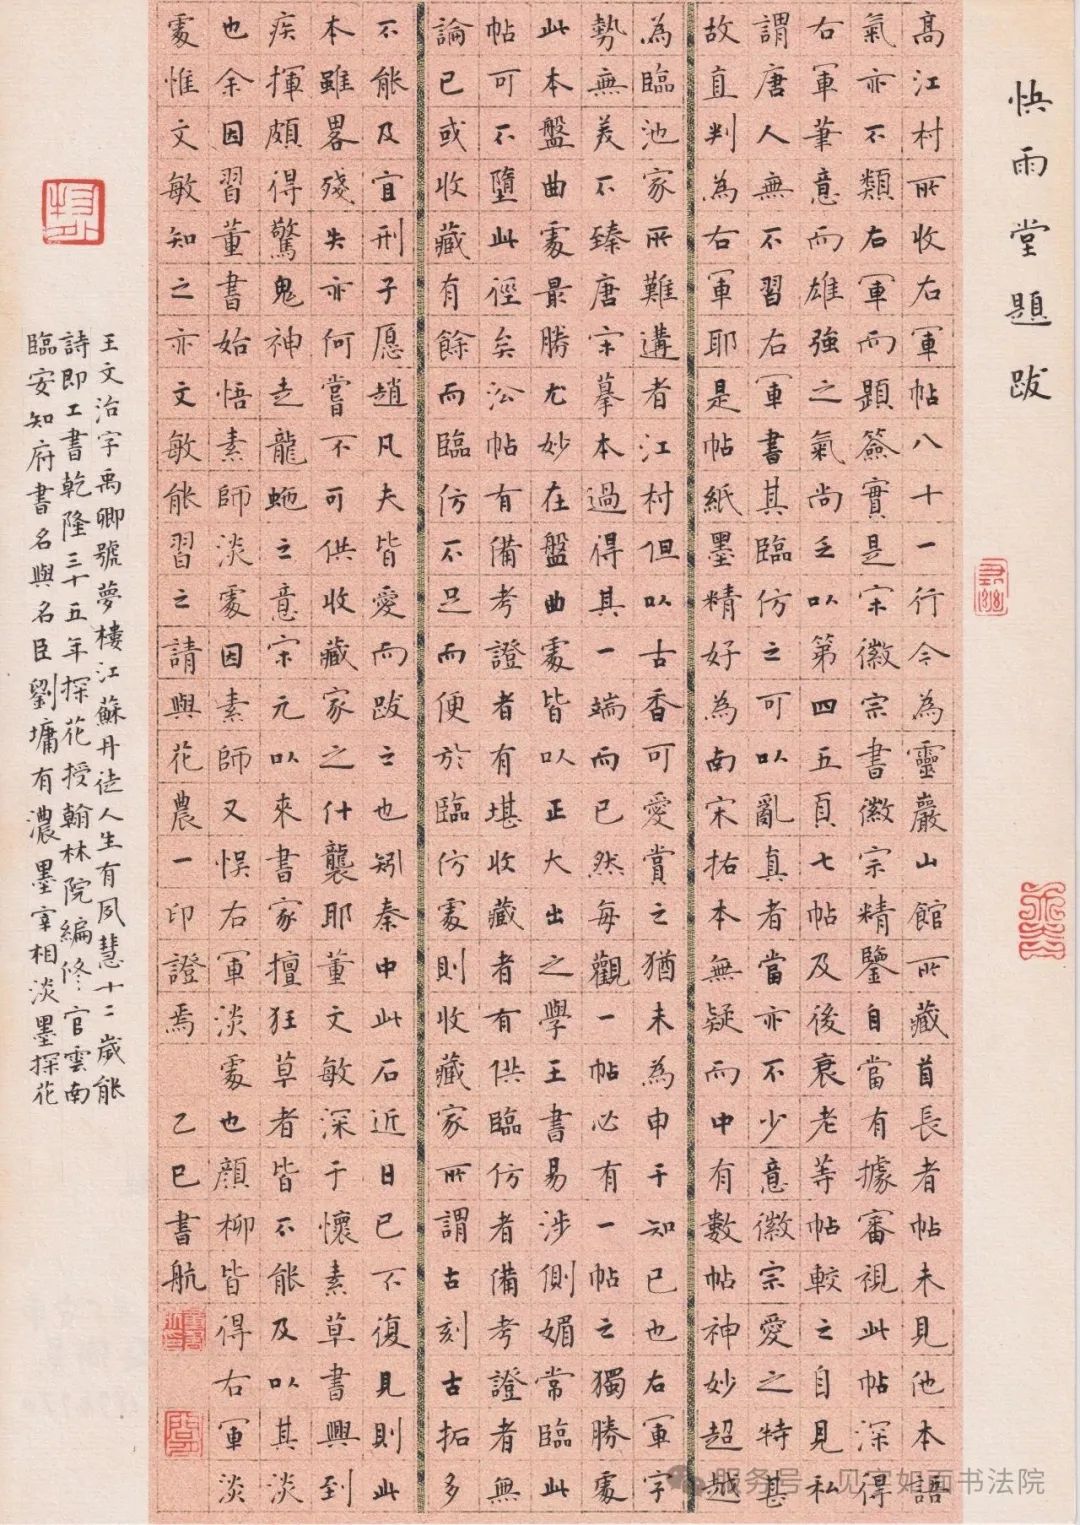 快雨堂題跋
高江村所收右軍帖八十一行今為靈巖山館所藏首長者帖未見他本語
氣亦不類右軍而題簽實是宋徽宗書徽宗精鑒自當有據審視此帖深得
右軍筆意而雄強之氣尚乏以第四五頁七帖及後衰老等帖較之自見私
謂唐人無不習右軍書其臨仿之可以亂真者當亦不少意徽宗愛之特甚
故直判為右軍耶是帖紙墨精好為南宋拓本無疑而中有數帖神妙超越
為臨池家所難遘者江村但以古香可愛賞之猶未為申千知已也右軍字
勢無美不臻唐宋摹本過得其一端而已然每觀一帖必有一帖之獨勝處
此本盤曲處最勝尤妙在盤曲處皆以正大出之學王書易涉側媚常臨此
帖可不墮此徑矣沿帖有備考證者有堪收藏者有供臨仿者備考證者無
論已或收藏有餘而臨仿不足而便於臨仿處則收藏家所謂古刻古拓多
不能及宜刑子愿趙凡夫皆愛而跋之也矧秦中此石近日已不復見則此
本雖畧殘失亦何嘗不可供收藏家之什襲耶董文敏深于懷素草書興到
疾揮頗得驚鬼神走龍虵之意宋元以來書家擅狂草者皆不能及以其淡
也余因習董書始悟素師淡處因素師又悮右軍淡處也顏柳皆得右軍淡
處惟文敏知之亦文敏能習之請與花農一印證焉 乙巳書航
王文治字禹卿號夢樓江蘇丹徒人生有夙慧十二歲能
詩即工書乾隆三十五年探花授翰林院編修官雲南
臨安知府書名與名臣劉墉有濃墨宰相淡墨探花
服务号 · 见字如面书法院